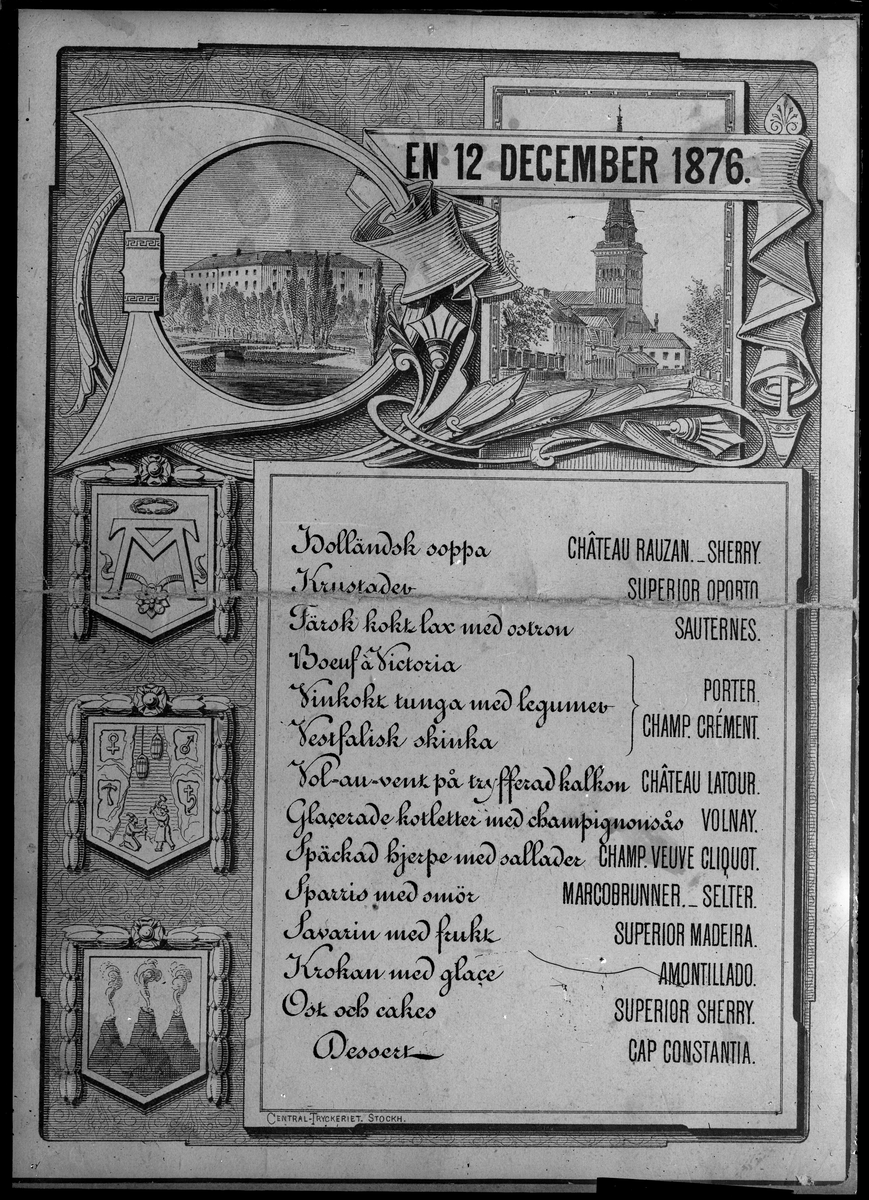 DEN 12 DECEMBER 1876.
Holländsk soppa CHÂTEAU RAUZAN._SHERRY.
Krustader SUPERIOR OPORTO
Färsk kokt lax med ostron SAUTERNES.
Boeuf à Victoria
Vinkokt tunga med legumer PORTER.
Vestfalisk skinka CHAMP. CRÉMENT.
Vol-au-vent på tryfferad kalkon CHÂTEAU LATOUR.
Glaçerade kotletter med champignonsås VOLNAY.
Späckad hjerpe med sallader CHAMP. VEUVE CLIQUOT.
Sparris med smör MARCOBRUNNER._SELTER.
Savarin med frukt SUPERIOR MADEIRA.
Krokan med glaçe AMONTILLADO.
Ost och cakes SUPERIOR SHERRY.
Dessert CAP CONSTANTIA.
CENTRAL-TRYCKERIET. STOCKH.